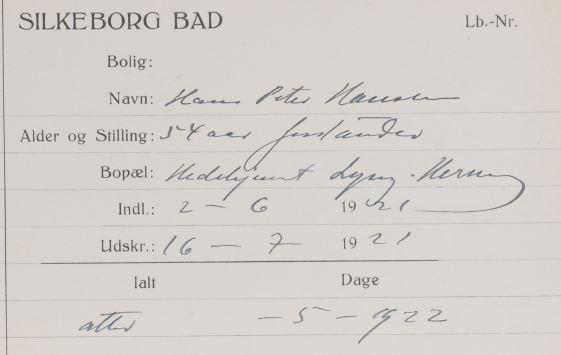 SILKEBORG BAD Lb.-Nr.
Bolig:
Navn: Hans Peter Hansen
Alder og Stilling: 54 aar
Bopæl: Lyng. Hern
Indl.: 2 – 6 1921
Udskr.: 16 – 7 1921
Ialt Dage
atter – 5 – 1922